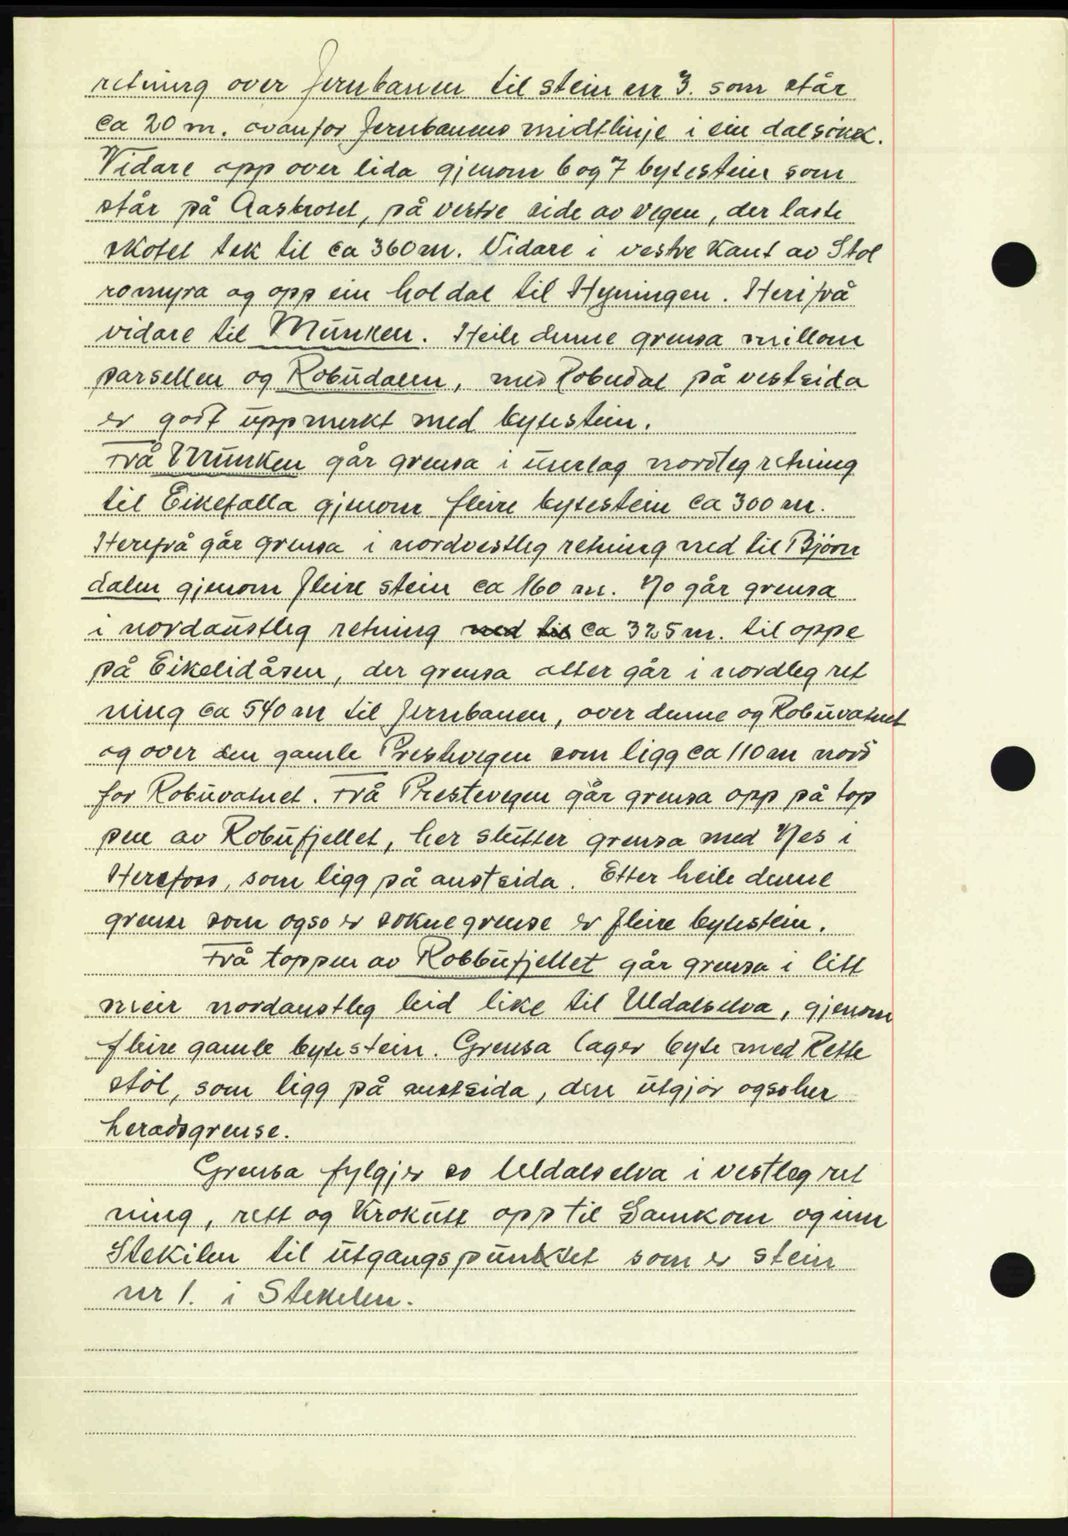 retning over Jernbanen til stein nr 3. som står
ca 20 m. ovanfor Jernbanens midtlinje i ein dalsøkk.
Vidare opp over lida gjenom 6 og 7 bytestein som
står på Aasbrotet, på vestre side av vegen, der laste
skotet tek til ca 360 m. Vidare i vestre kant av Stol
romyra og opp ein holdal til Hyningen. Herifrå
vidare til Munken. Heile denne grensa millom
parsellen og Robudalen, med Robudal på vestsida
er godt uppmerkt med bytestein.
Frå Munken går grensa i unelag nordleg retning
til Eikefalla gjenom fleire bytestein ca 300 m.
Herifrå går grensa i nordvestleg retning ned til Bjørn
dalen gjenom fleire stein ca 160 m. No går grensa
i nordaustleg retning ned til ca 325 m. til oppe
på Eikelidåsen, der grensa atter går i nordleg ret
ning ca 540 m til Jernbanen, over denne og Robuvatnet
og over den gamle Prestvegen som ligg ca 110 m nord
for Robuvatnet. Frå Prestevegen går grensa opp på top
pen av Robufjellet, her slutter grensa med Nes i
Herefoss, som ligg på austsida. Etter heile denne
grense som ogso er soknegrense er fleire bytestein.
Frå toppen av Robbufjellet går grensa i litt
meir nordaustleg leid like til Uldalselva, gjenom
fleire gamle bytestein. Grensa lager byte med Rette
støl, som ligg på austsida, den utgjør ogso her
heradsgrense.
Grensa fylgjer so Uldalselva i vestleg ret
ning, rett og krokutt opp til Samkom og inn
Stekilen til utgangspunktet som er stein
nr 1. i Stekelen.